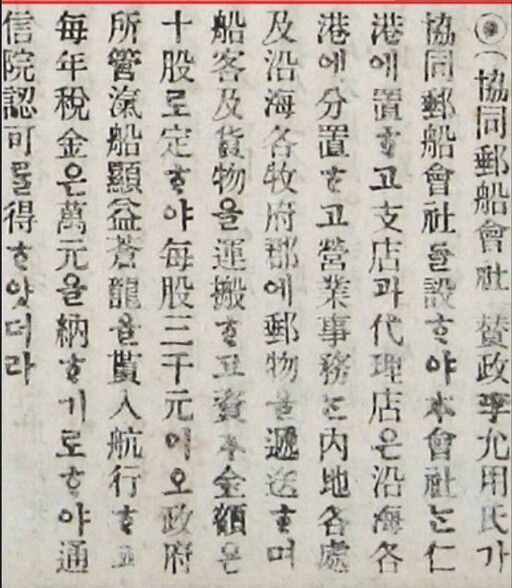 ◉(協同郵船會社 贊政李允用氏가
協同郵船會社를設ᄒᆞ야本會社ᄂᆞᆫ仁
港에置ᄒᆞ고支店과代理店은沿海各
港에分置ᄒᆞ고營業事務ᄂᆞᆫ內地各處
及沿海各牧府郡에郵物을遞送ᄒᆞ며
船客及貨物을運搬ᄒᆞ고資本金額은
十股로定ᄒᆞ야每股三千元이오政府
所管滊船顯益蒼龍을貰入航行ᄒᆞ고
每年稅金은萬元을納ᄒᆞ기로ᄒᆞ야通
信院認可를得ᄒᆞ얏더라